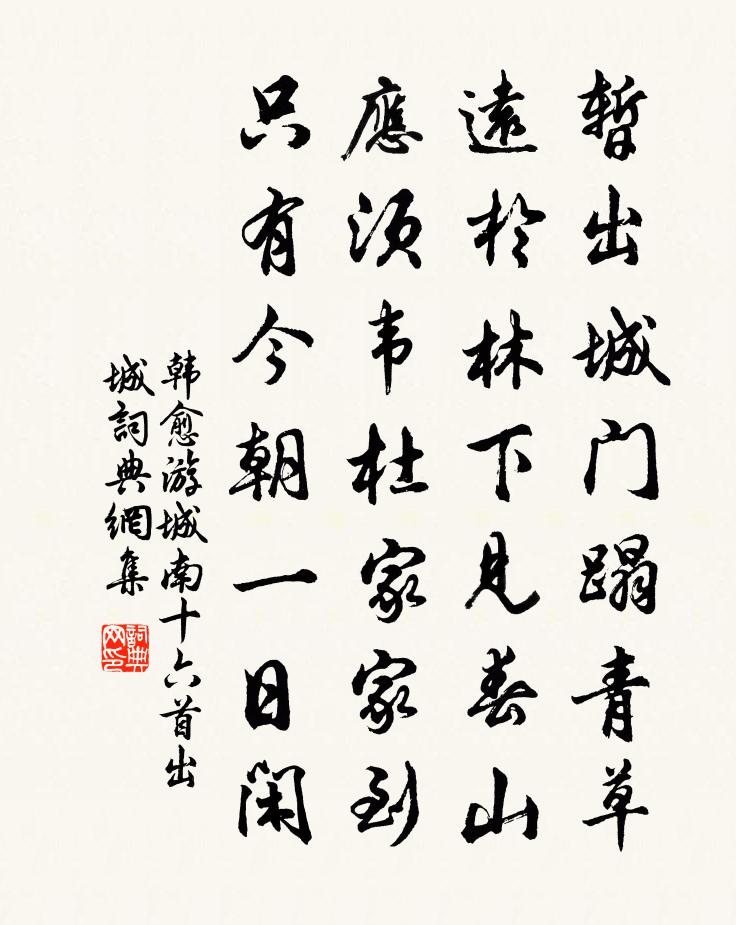 暫出城门蹋青草
遠於林下見春山
應须韦杜家家到
只有今朝一日闲
韩愈游城南十六首出
城詞典網集
詞典
网印